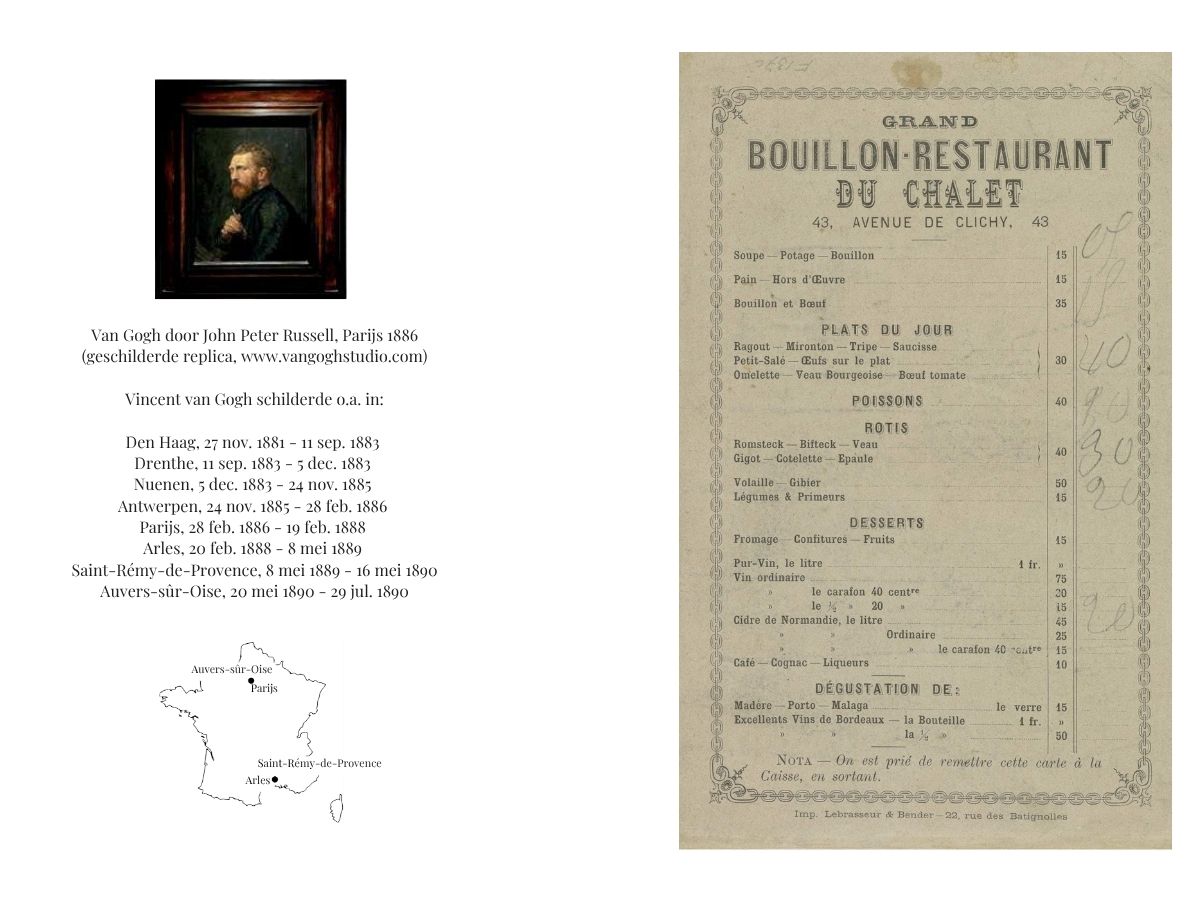 Van Gogh door John Peter Russell, Parijs 1886
(geschilderde replica, www.vangoghstudio.com)
Vincent van Gogh schilderde o.a. in:
Den Haag, 27 nov. 1881 - 11 sep. 1883
Drenthe, 11 sep. 1883 - 5 dec. 1883
Nuenen, 5 dec. 1883 - 24 nov. 1885
Antwerpen, 24 nov. 1885 - 28 feb. 1886
Parijs, 28 feb. 1886 - 19 feb. 1888
Arles, 20 feb. 1888 - 8 mei 1889
Saint-Rémy-de-Provence, 8 mei 1889 - 16 mei 1890
Auvers-sûr-Oise, 20 mei 1890 - 29 jul. 1890
Auvers-sûr-Oise
Parijs
Saint-Rémy-de-Provence
Arles
GRAND
BOUILLON-RESTAURANT
DU CHALET
43, AVENUE DE CLICHY, 43
Soupe — Potage — Bouillon 15
Pain — Hors d'Œuvre 15
Bouillon et Bœuf 35
PLATS DU JOUR
Ragout — Mironton — Tripe — Saucisse
Petit-Salé — Œufs sur le plat 30
Omelette — Veau Bourgeoise — Bœuf tomate
40
POISSONS 40
ROTIS
Romsteck — Bifteck — Veau
40
Gigot — Cotelette — Epaule
30
Volaille — Gibier 50
Légumes & Primeurs 15
20
DESSERTS
Fromage — Confitures — Fruits 15
Pur-Vin, le litre 1 fr. »
Vin ordinaire 75
» le carafon 40 centre 30
» le ½ » 20 » 15
20
Cidre de Normandie, le litre 45
» » Ordinaire 25
» » » le carafon 40 centre 15
Café — Cognac — Liqueurs 10
DÉGUSTATION DE:
Madère — Porto — Malaga le verre 15
Excellents Vins de Bordeaux — la Bouteille 1 fr. »
» » la ½ » 50
NOTA — On est prié de remettre cette carte à la
Caisse, en sortant.
Imp. Lebrasseur & Bender — 22, rue des Batignolles